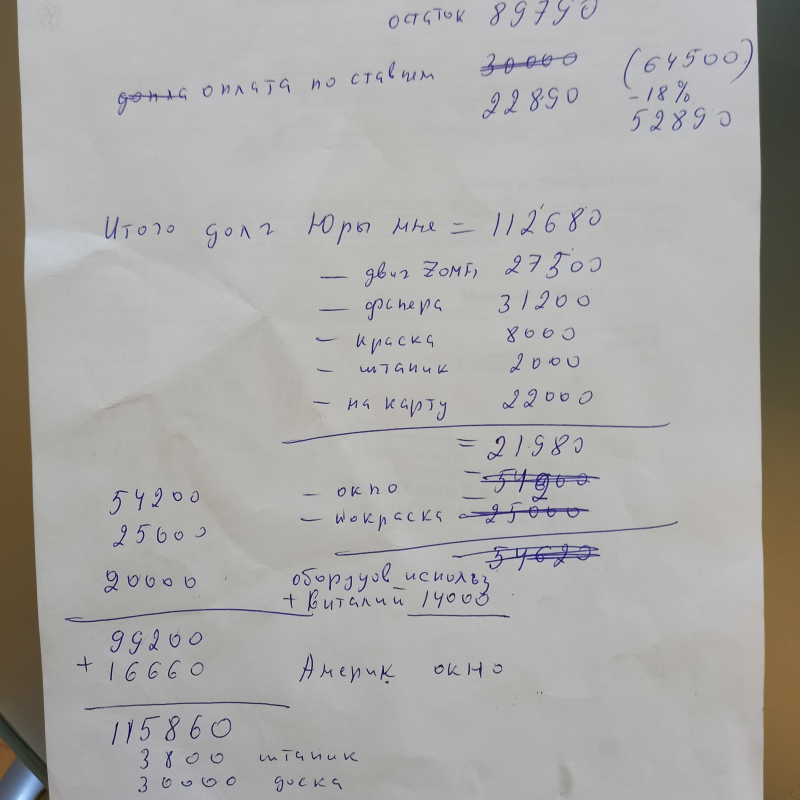 остаток 89790
допла оплата по ставням 30000 (64500)
22890 -18%
52890
Итого долг Юры мне = 112680
— двиг 27500
— фанера 31200
— краска 8000
— штапик 2000
— на карту 22000
= 21980
54200 — окно - 54200
25000 — покраска - 25000
54620
20000 оборудов использ
+ Виталий 14000
99200
+ 16660 Америк окно
115860
3800 штапик
30000 доска